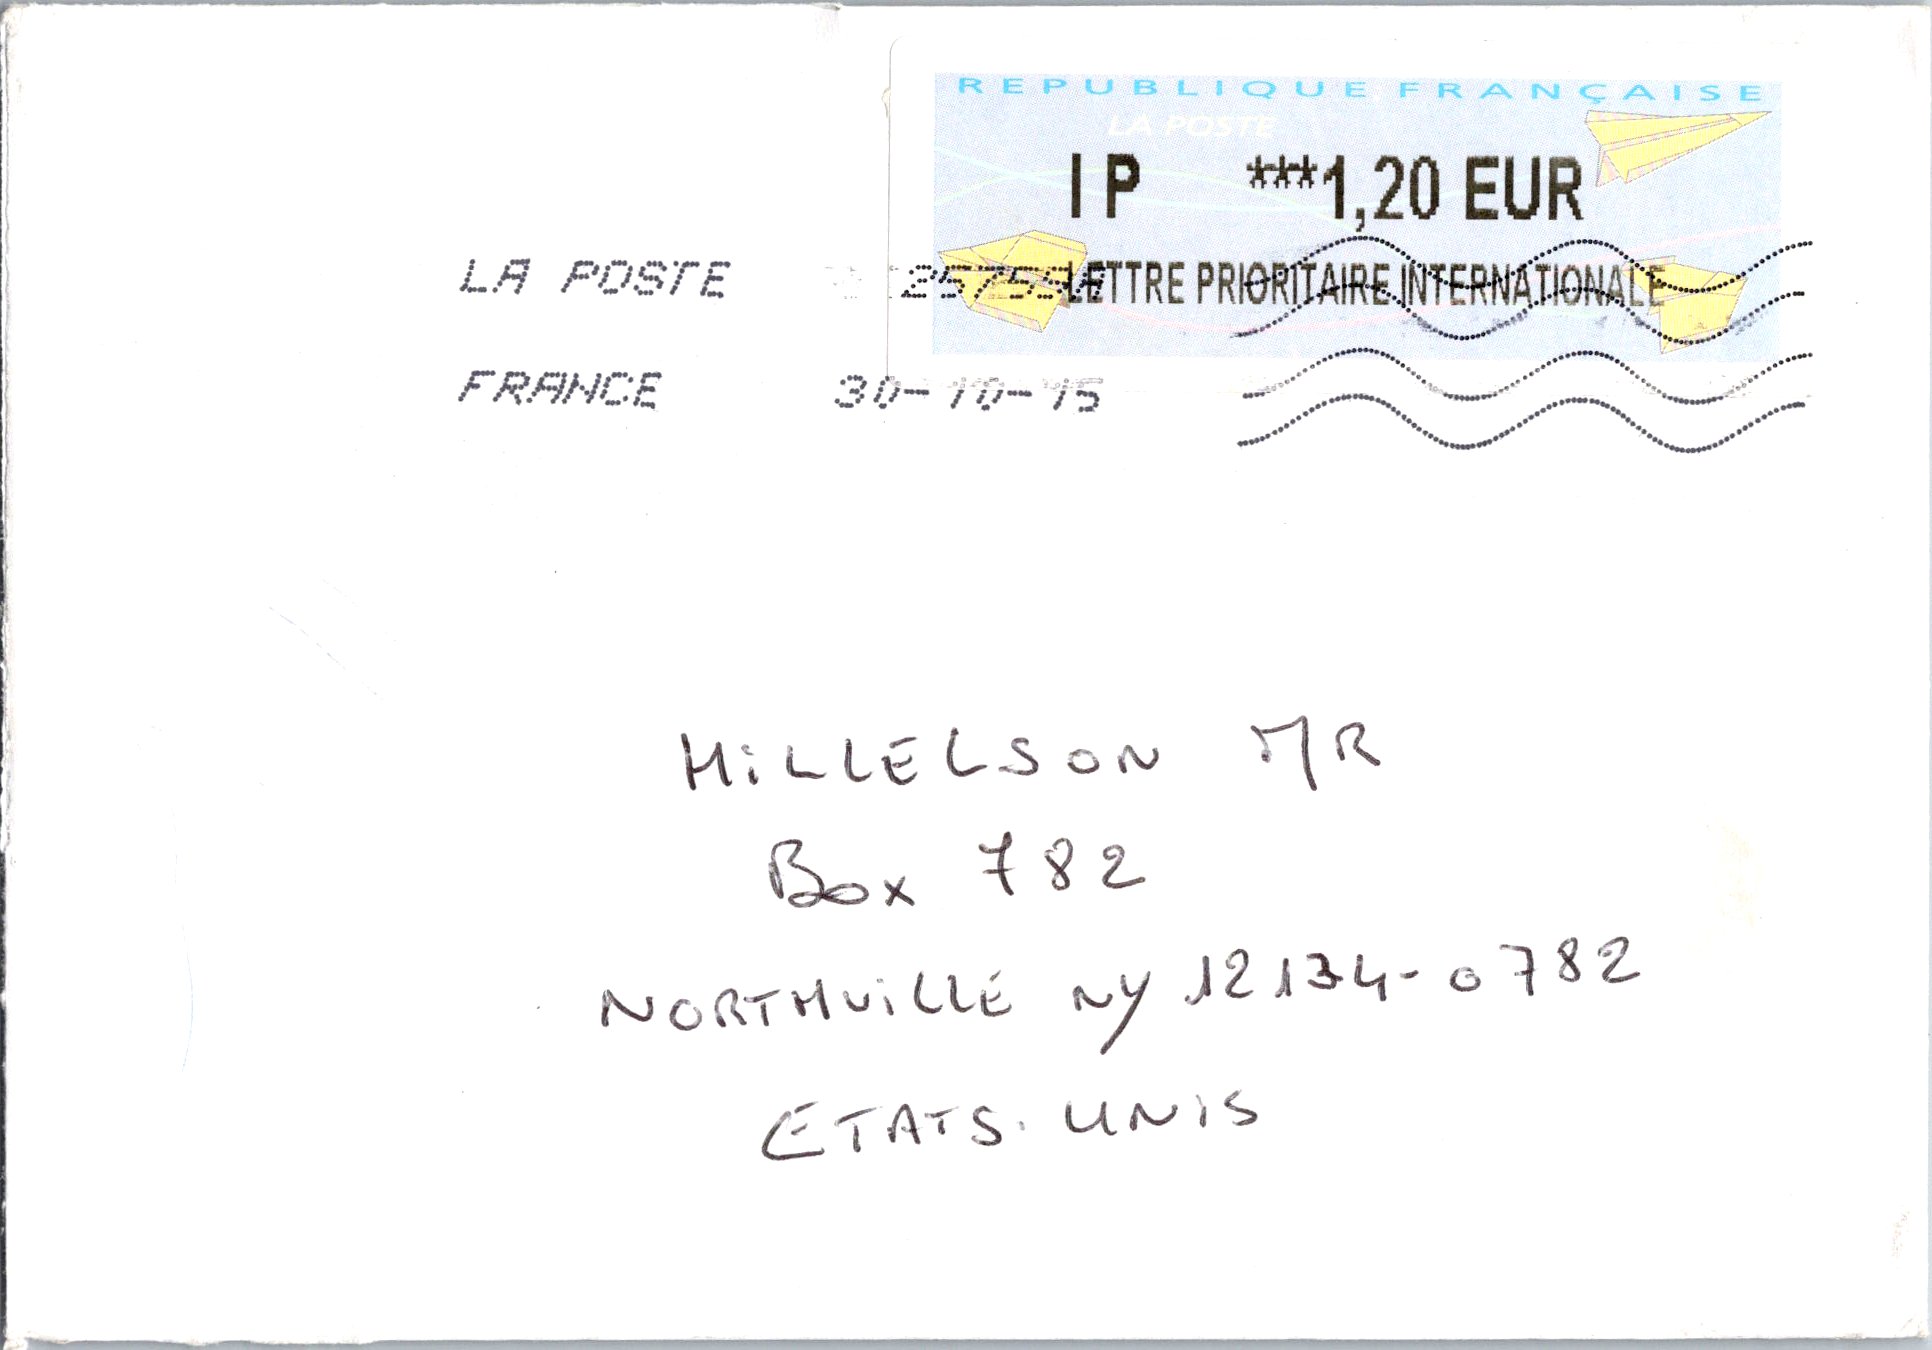 REPUBLIQUE FRANÇAISE
LA POSTE
IP ***1,20 EUR
LETTRE PRIORITAIRE INTERNATIONALE
LA POSTE
FRANCE 30-10-15
HiLLELSON MR
Box 782
NORTHViLLE NY 12134-0782
ETATS. UNiS